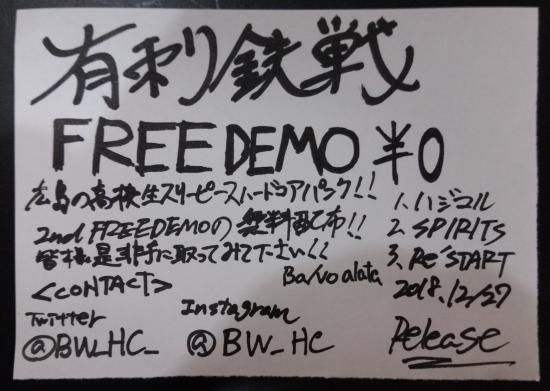 有刺鉄戦
FREE DEMO ¥0
広島の高校生スリーピースハードコアパンク!!
2nd FREEDEMOの無料配布!!
皆様是非手に取ってみて下さい!!
<CONTACT>
Ba/vo alata
Twitter
@BW_HC_
Instagram
@BW_HC
1. ハジコル
2. SPIRITS
3. Re'START
2018.12/27
Release